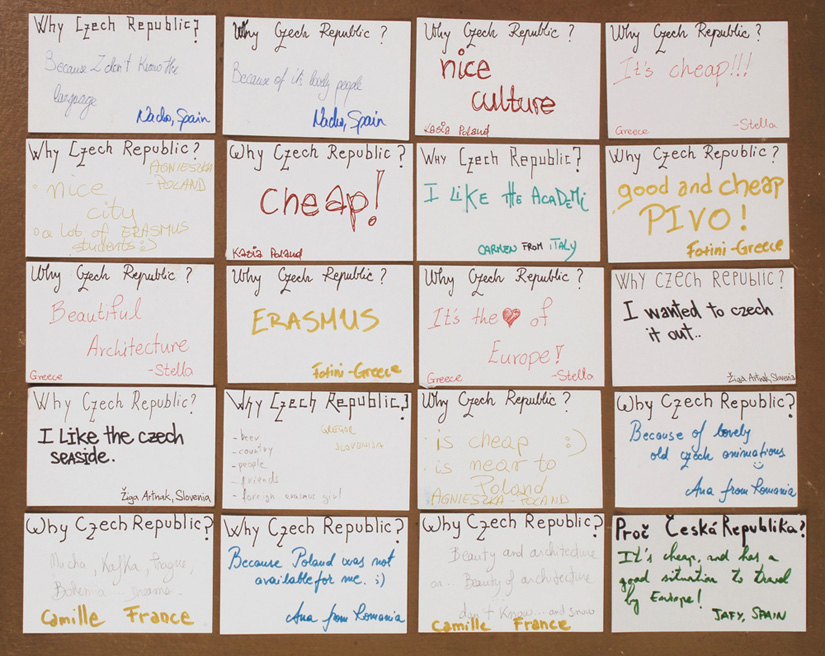 Why Czech Republic?
Because I don't know the
language
Nacho, Spain
Why Czech Republic?
Because of its lovely people
Nacho, Spain
Why Czech Republic?
nice
culture
Kasia Poland
Why Czech Republic?
It's cheap!!!
Greece -Stella
Why Czech Republic?
AGNIESZKA
-POLAND
nice
city
a lot of ERASMUS
students :)
Why Czech Republic?
cheap!
Kasia Poland
Why Czech Republic?
I LIKE THE ACADEMi
CARMEN FROM iTALY
Why Czech Republic?
good and cheap
PIVO!
Fotini-Greece
Why Czech Republic?
Beautiful
Architecture
Greece -Stella
Why Czech Republic?
ERASMUS
Fotini-Greece
Why Czech Republic?
It's the ♥ of
Europe!
Greece -Stella
Why Czech Republic?
I wanted to czech
it out..
Žiga Artnak, Slovenia
Why Czech Republic?
I Like the czech
seaside.
Žiga Artnak, Slovenia
Why Czech Republic?
SLOVENIJA
- beer
- country
- people
- friends
- foreign erasmus girl
Why Czech Republic?
is cheap :)
is near to
Poland
AGNIESZKA - POLAND
Why Czech Republic?
Because of lovely
old czech animations
Ana from Romania
Why Czech Republic?
Mucha, Kafka, Prague,
Bohemia ...
Camille France
Why Czech Republic?
Because Poland was not
available for me. :)
Ana from Romania
Why Czech Republic?
Beauty and architecture
or... Beauty of architecture
don't know... and
Camille France
Proč Česká Republika?
It's cheap, and has a
good situation to travel
by Europe!
JAFY, SPAIN